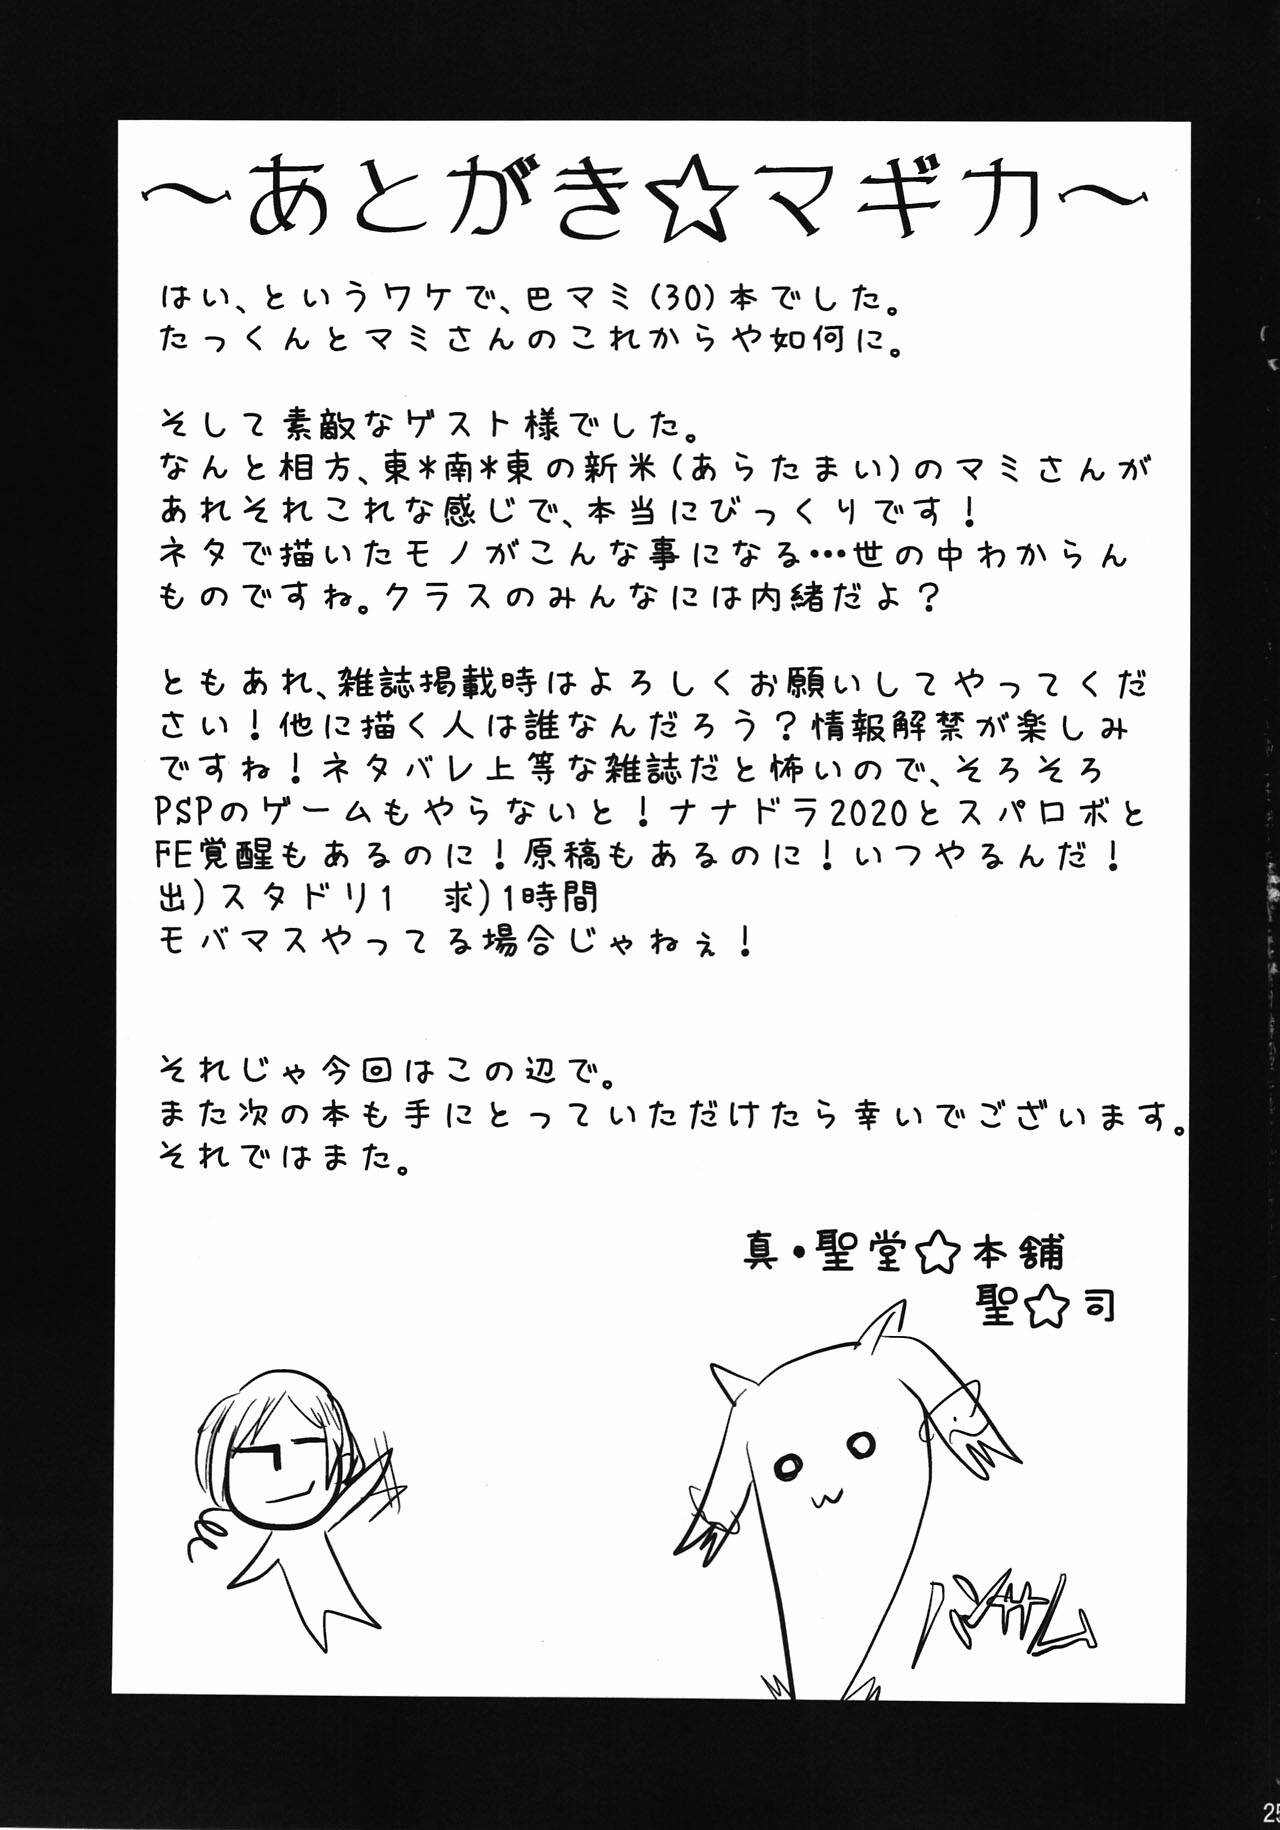 ～あとがき☆マギカ～
はい、というワケで、巴マミ(30)本でした。
たっくんとマミさんのこれからや如何に。
そして素敵なゲスト様でした。
なんと相方、東*南*東の新米(あらたまい)のマミさんが
あれそれこれな感じで、本当にびっくりです！
ネタで描いたモノがこんな事になる…世の中わからん
ものですね。クラスのみんなには内緒だよ？
ともあれ、雑誌掲載時はよろしくお願いしてやってくだ
さい！他に描く人は誰なんだろう？情報解禁が楽しみ
ですね！ネタバレ上等な雑誌だと怖いので、そろそろ
PSPのゲームもやらないと！ナナドラ2020とスパロボと
FE覚醒もあるのに！原稿もあるのに！いつやるんだ！
出)スタドリ1　求)1時間
モバマスやってる場合じゃねぇ！
それじゃ今回はこの辺で。
また次の本も手にとっていただけたら幸いでございます。
それではまた。
真・聖堂☆本舗
聖☆司
ハンサム
25